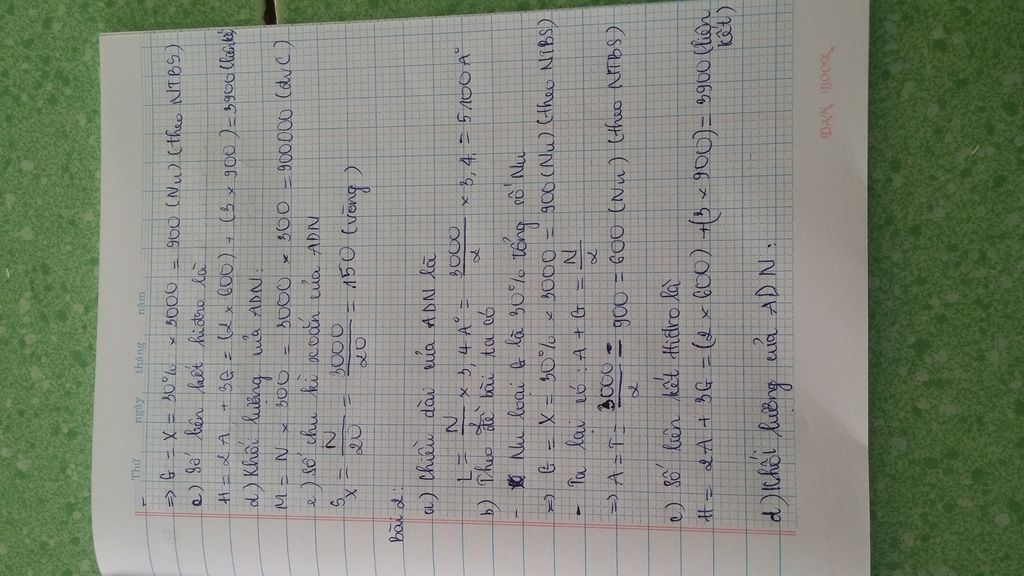 Thứ ngày tháng năm
=> G = X = 30% × 3000 = 900 (Nu) (theo NTBS)
c) Số liên kết hiđro là
H = 2A + 3G = (2 × 600) + (3 × 900) = 3900 (liên kết)
d) Khối lượng của ADN:
M = N × 300 = 3000 × 300 = 900000 (đvC)
e) Số chu kì xoắn của ADN
Sx = N/20 = 3000/20 = 150 (vòng)
Bài 2:
a) Chiều dài của ADN là
L = N/2 × 3,4A° = 3000/2 × 3,4 = 5100A°
b) Theo đề bài ta có
- Nu loại G là 30% tổng số Nu
=> G = X = 30% × 3000 = 900 (Nu) (theo NTBS)
- Ta lại có: A + G = N/2
=> A = T = 3000/2 - 900 = 600 (Nu) (theo NTBS)
c) Số liên kết Hiđro là
H = 2A + 3G = (2 × 600) + (3 × 900) = 3900 (liên kết)
d) Khối lượng của ADN: